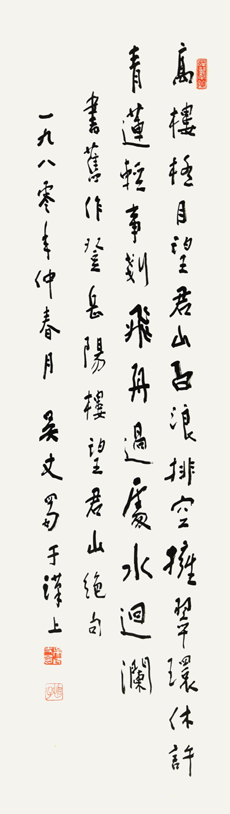 高樓極目望君山白浪排空擁翠環休許
青蓮輕事剗飛舟過處水迴瀾
書舊作登岳陽樓望君山絕句
一九八零年仲春月 吳丈蜀于漢上